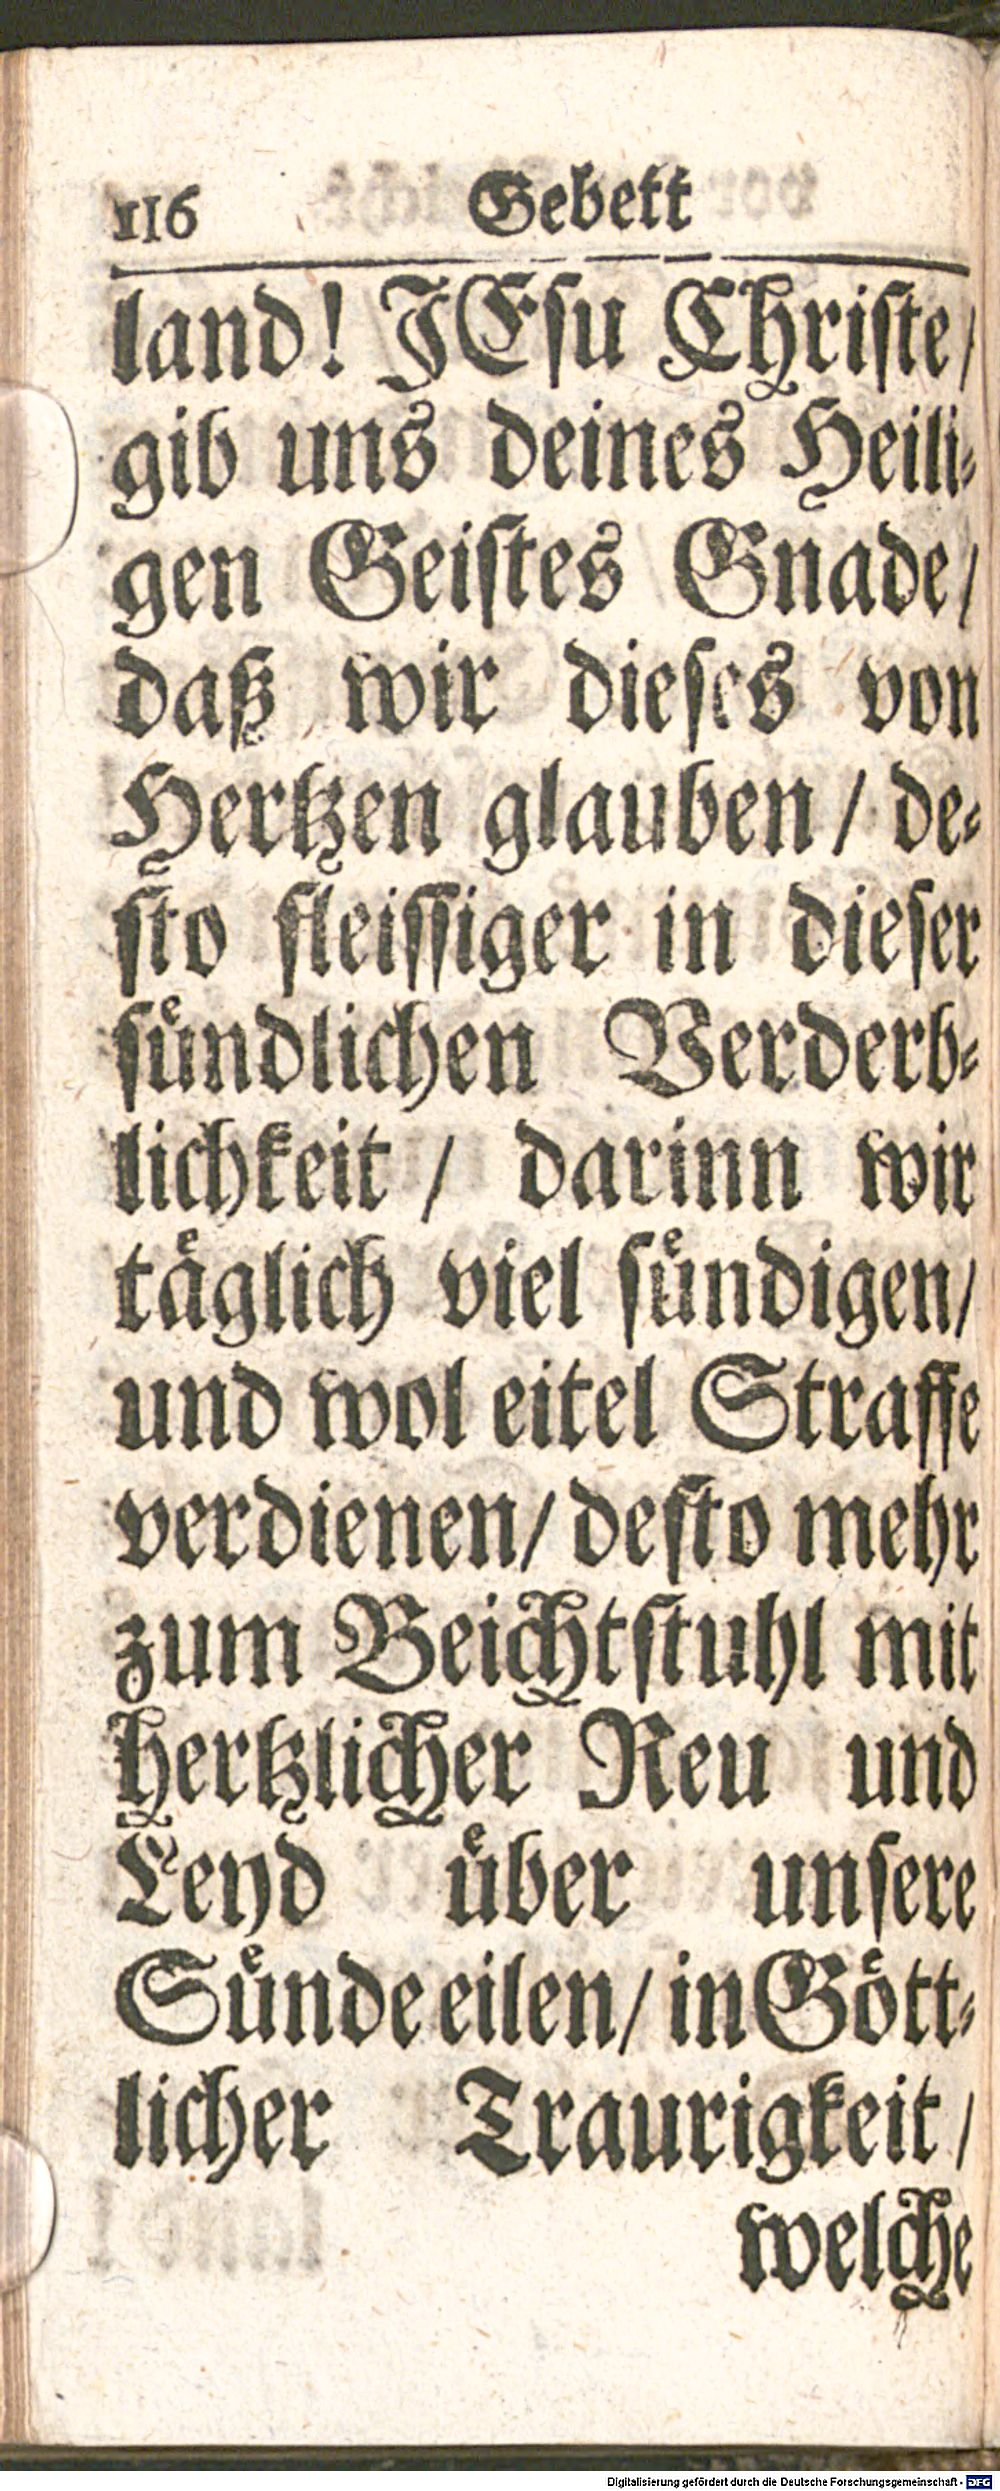 116 Gebett
land! JEsu Christe/
gib uns deines Heili-
gen Geistes Gnade/
daß wir dieses von
Hertzen glauben/ de-
sto fleissiger in dieser
sündlichen Verderb-
lichkeit/ darinn wir
täglich viel sündigen/
und wol eitel Straffe
verdienen/ desto mehr
zum Beichtstuhl mit
hertzlicher Reu und
Leyd über unsere
Sünde eilen/ in Gött-
licher Traurigkeit/
welche
Digitalisierung gefördert durch die Deutsche Forschungsgemeinschaft - DFG